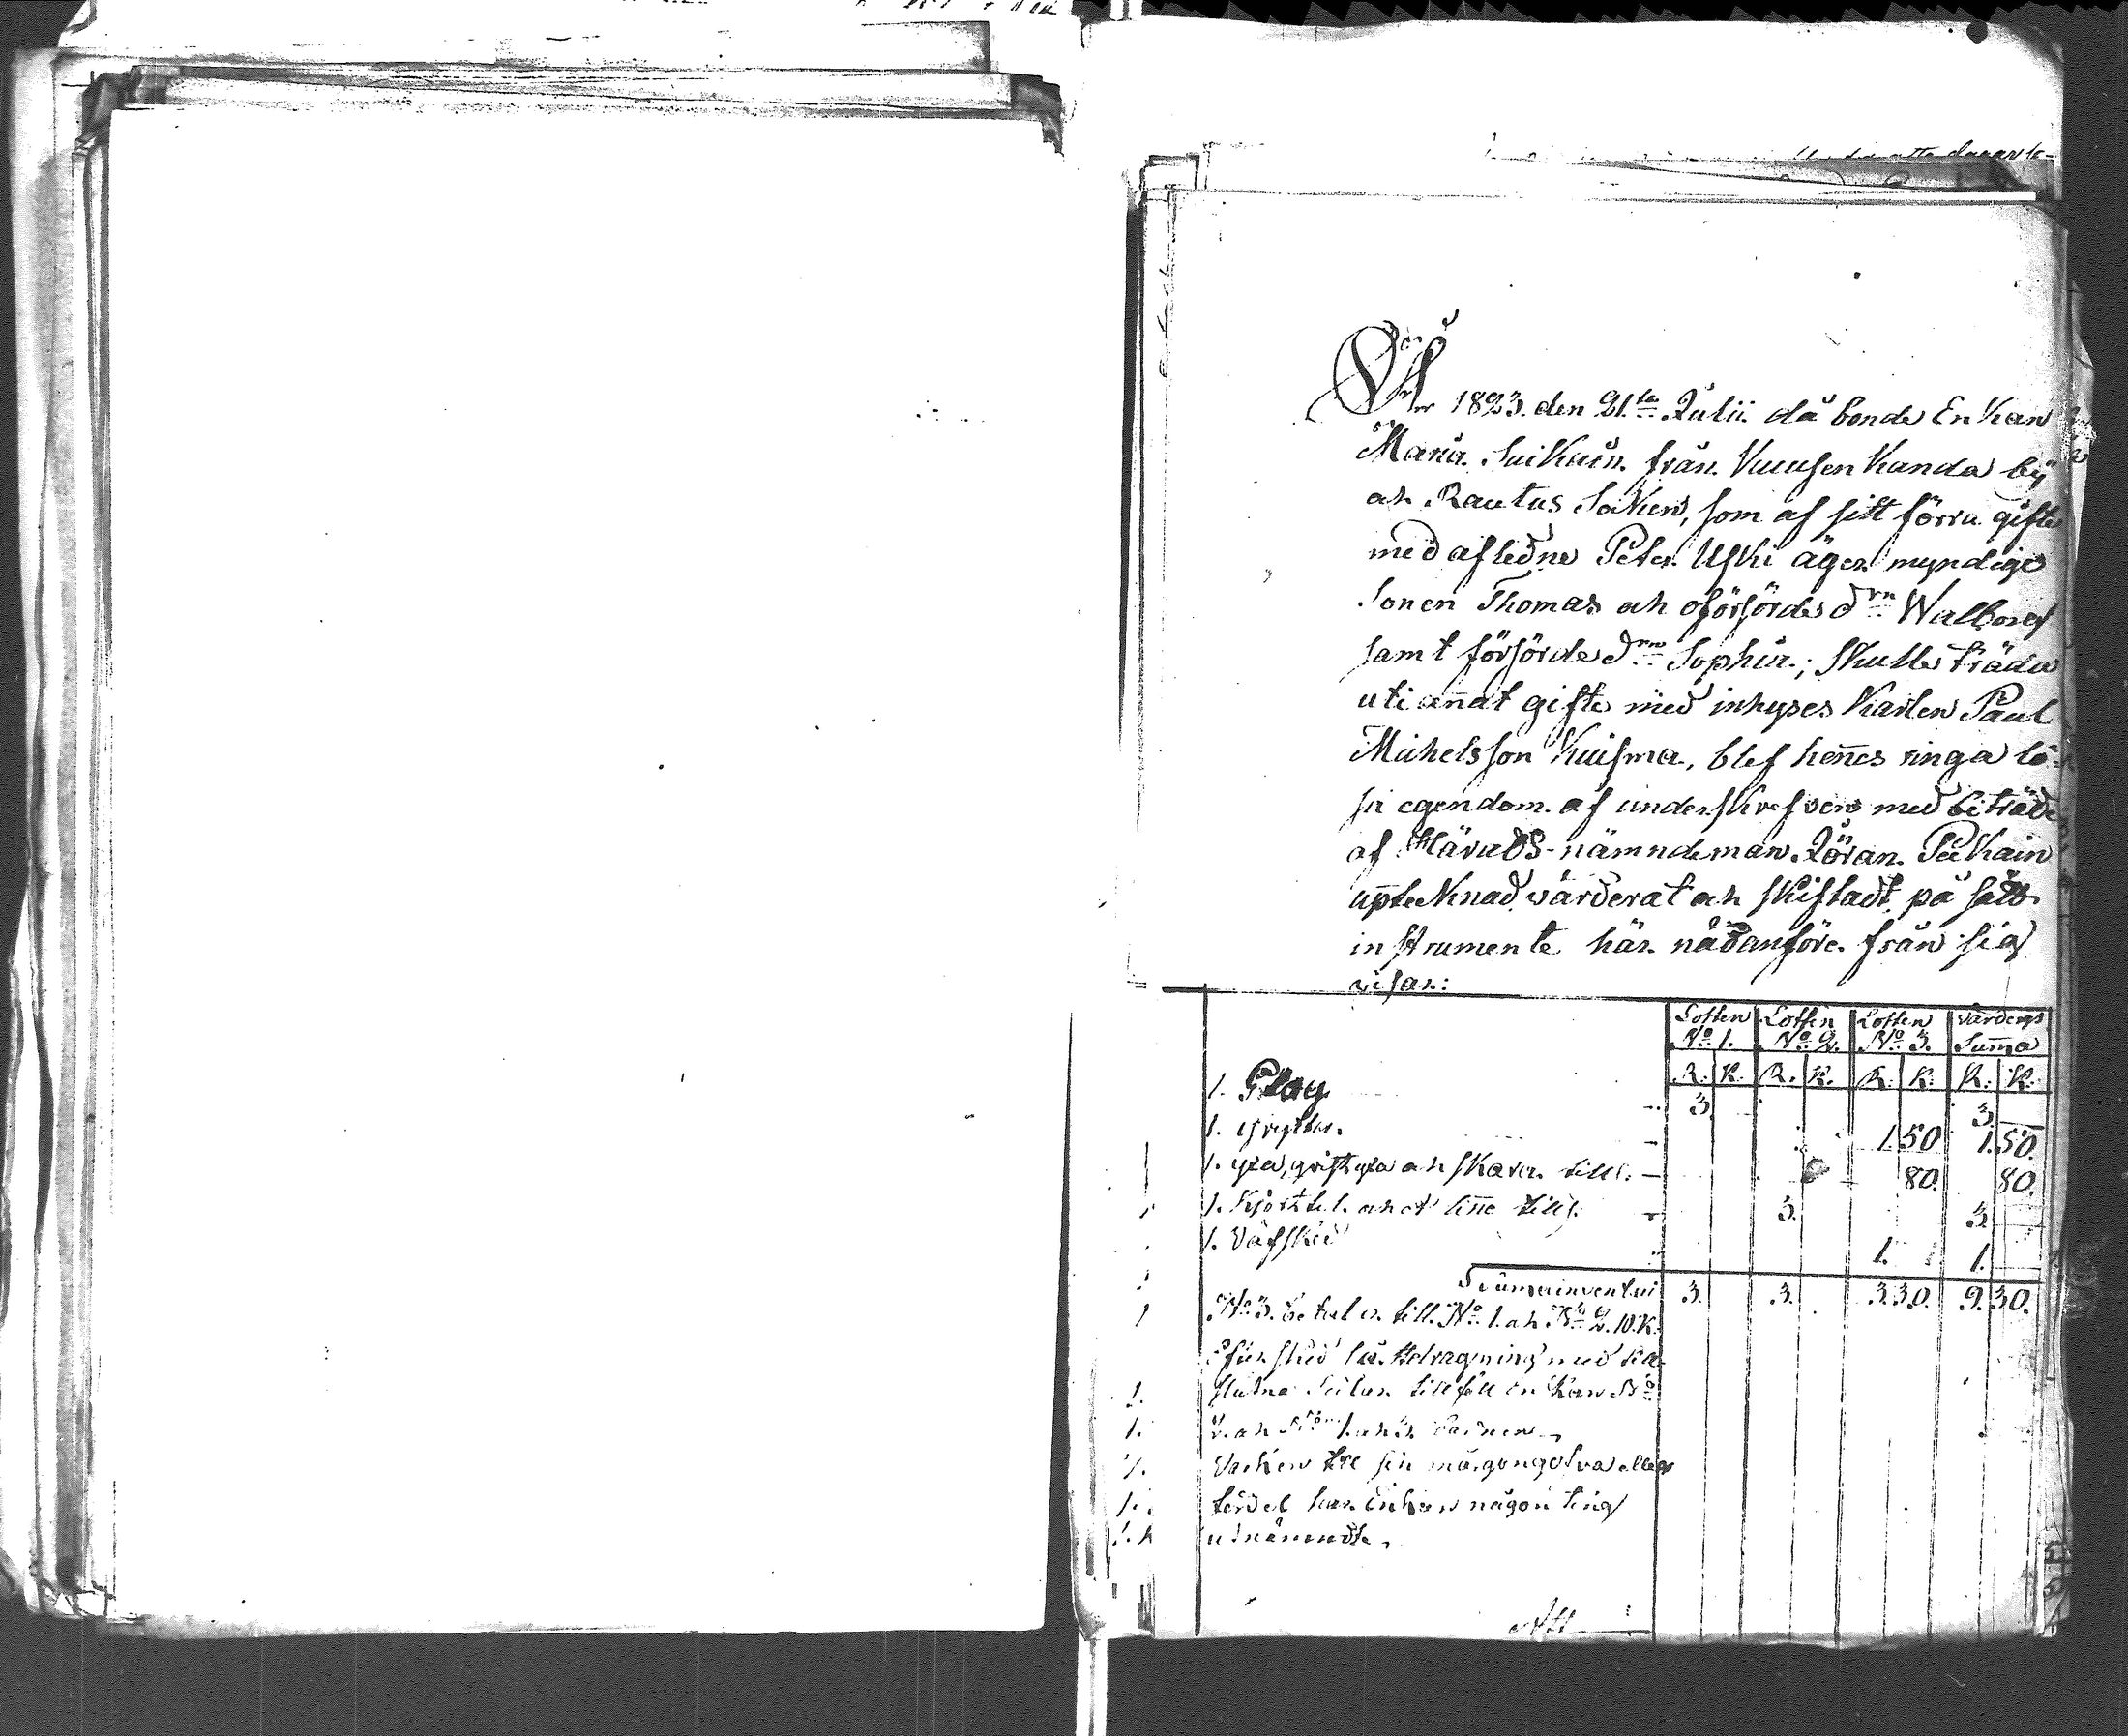 År 1823. den 21.ta Julii då bonde Enkan
Maria Suikain från Kuusenkanda bÿ
och Rautus Soken, som af sitt förra gifte
med afledne Peter Uski äger myndige
Sonen Thomas och oförsörde drn Walborg
samt försörde drn Sophia; skulle träda
uti an̄at gifte med inhyses Karlen Paul
Michelsson Kuisma, blef hen̄es ringa lö-
sa egendom af underskrefven med biträde
af Härads-nämndeman Jöran Peekain
uptecknad värderat och skiftadt på sätt
instrumente här nådanföre från sig
visar:
Lotten No 1. Lotten No 2. Lotten No 3. Värderings Sum̄a
R. K. R. K. R. K. R. K.
1. Plog 3. 3.
1. gryta 1.50 1.50.
1. yxa, och skära till: 80. 80.
1. Kjortel och et lin̄e till: 3. 3.
1. Väfsked 1. 1.
Sum̄a inventari 3. 3. 3.30. 9.30.
No 3. betalar till No 1. och No 2. 10. K.
med
tillföll Enkan No
2. och
eller
fördel har Enkan någon ting
utnämndt.
Att